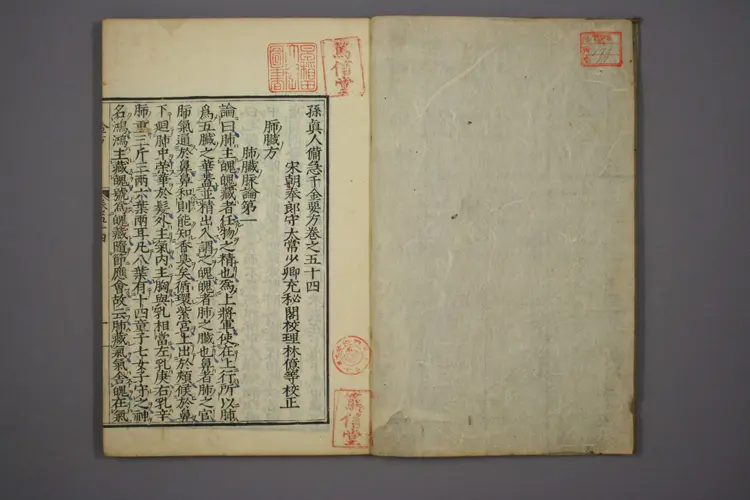 孫眞人備急千金要方卷之五十四
宋朝奉郎守太常少卿充秘閣校理林億等校正
肺臟方
肺臟脉論第一
論曰肺主魄魄藏者任物之精也爲上將軍使在上行所以肺
爲五臟之華蓋並精出入謂之魄魄者肺之臟也鼻者肺之官
肺氣通於鼻鼻和則能知香臭矣循環紫宮上出於頰候於鼻
下迴肺中榮華於髮外主氣内主胸與乳相當左乳庚右乳辛
肺重三斤三兩六葉兩耳凡八葉有十四童子七女子守之神
名鴻鴻主藏魄號爲魄藏隨節應會故云肺藏氣氣舍魄在氣
篤信堂
圖書
篤信堂